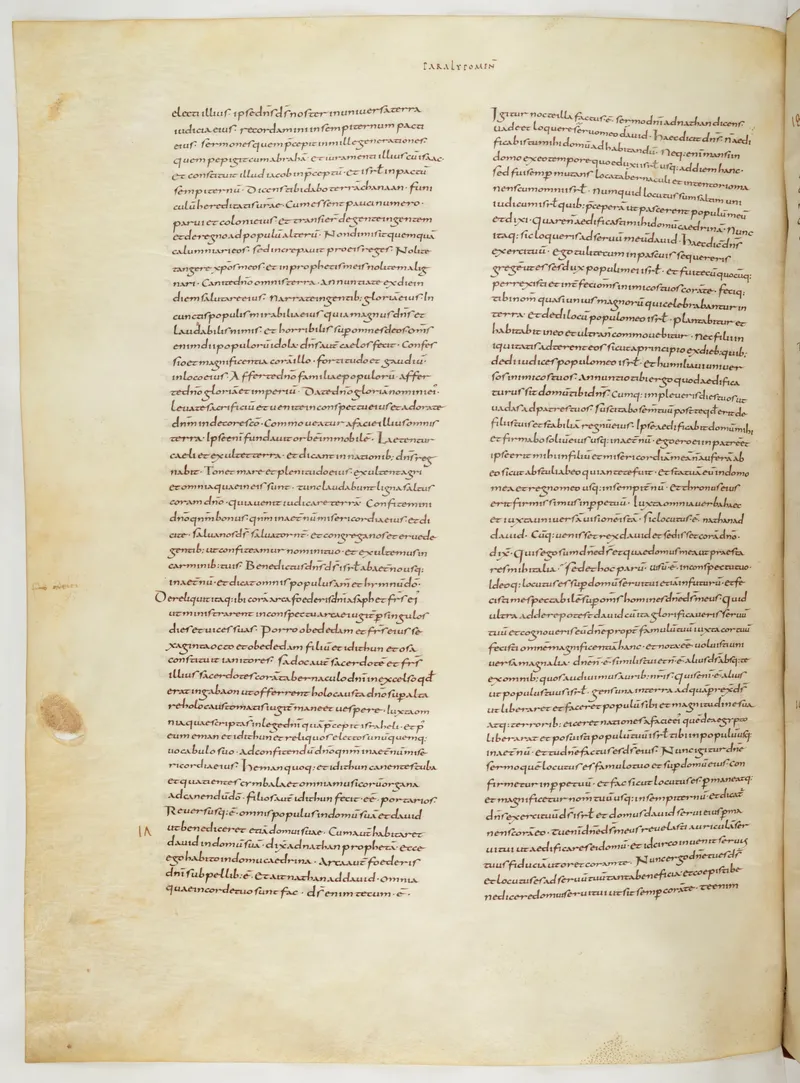 PARALYPOMIN̄
electi illius · ipse dn̄s ds̄ noster in uniuersa terra
iudicia eius · recordamini in sempiternum pacti
eius · sermones quem p̄cepit in mille generationes
quem pepigit cum abrahā · et iuramenti illius cū isaac ·
et constituit illud iacob in p̄ceptū · et isrl̄ in pactū
sempiternū · Dicens tibi dabo terrā chanaan · funi
culū hereditatis urae · Cum essent pauci numero ·
parui et coloni eius · et transier̄ de gente in gentem
et de regno ad populū alterū · Non dimisit quemquā
calumniari eos · sed increpauit pro eis reges · Nolite
tangere xp̄os meos · et in prophetis meis nolite malig
nari · Cantate dn̄o omnis terra · Annuntiate ex die in
diem salutare eius · Narrate in gentib; gloriā eius · In
cunctis populis mirabilia eius · quia magnus dn̄s et
laudabilis nimis · et horribilis sup omnes deos · Om̄s
enim dii populorū idola · dn̄s aut̄ caelos fecit · Confes
sio et magnificentia corā illo · fortitudo et gaudiū
in loco eius · Afferte dn̄o familiae populorū · affer
te dn̄o gloriā et imperiū · Date dn̄o gloriā nomini ei ·
leuate sacrificiū et uenite in conspectu eius · et adorate
dn̄m in decore sc̄o · Commoueatur a facie illius omnis
terra · Ipse enī fundauit orbē immobilē · Laetentur
caeli et exultet terra · et dicant in nationib; dn̄s reg
nabit · Tonet mare et plenitudo eius · exultent agri
et omnia quae in eis sunt · tunc laudabunt ligna saltus
coram dn̄o · quia uenit iudicare terrā · Confitemini
dn̄o qnm̄ bonus · qnm̄ in aet̄nū misericordia eius · et di
cite · salua nos ds̄ saluator nr̄ · et congrega nos et erue de
gentib; ut confiteamur nomini tuo · et exultemus in
carminib; tuis · Benedictus dn̄s ds̄ isrl̄ ab aet̄no usq;
in aet̄nū · et dicat omnis populus am̄ et hymnū dn̄o ·
Dereliquit itaq; ibi corā arca foederis dn̄i asaph et fr̄s ei
ut ministrarent in conspectu arcae iugit̄ p singulos
dies et uices suas · Porro obededam et fr̄s eius se
xaginta octo · et obededam filiū et idithun et osa
constituit ianitores · sadoc aut̄ sacerdotē et fr̄s
illius sacerdotes corā tabernaculo dn̄i in excelso qd̄
erat in gabaon · ut offerrent holocausta dn̄o sup alta
re holocaustomatis iugit̄ mane et uespere · Iuxta om
nia quae scripta s in lege dn̄i quā p̄cepit israheli · et p̄
eum eman et idithun et reliquos electos unū quemq;
uocabulo suo · Ad confitendū dn̄o qnm̄ in aet̄nū mise
ricordia eius · Heman quoq; et idithun canentes tuba
et quatientes cymbala et omnia musicorū organa
ad canendū dō · filios aut̄ idithun fecit eē portarios ·
Reuersusq; ē omnis populus in domū suā · et dauid
ut benediceret etiā domui suae · Cum aut̄ habitaret
dauid in domū suā · dixit ad nathan prophetā · ecce
ego habito in domu caedrina · Arca aut̄ foederis
dn̄i sub pellib; ē · Et ait nathan ad dauid · Omnia
quae in corde tuo sunt fac · ds̄ enim tecum ē ·
IΛ
Igitur nocte illa factus ē sermo dn̄i ad nathan dicens
uade et loquere seruo meo dauid · Haec dicit dn̄s n̄ aedi
ficabis tu mihi domū ad habitandū · Neq; enī mansi in
domo ex eo tempore quo eduxi isrl̄ usq; ad diem hanc ·
sed fui semp mutans loca tabernaculi et in tentorio ma
nens cum omni isrl̄ · Numquid locutus sum saltim uni
iudicum isrl̄ quib; p̄ceperā ut pascerent populū meū
et dixi · Quare n̄ aedificastis mihi domū caedrinā · Nunc
itaq; sic loqueris ad seruū meū dauid · Haec dic̄ dn̄s
exercituū · ego tuli te cum in pascuis sequereris
gregē ut esses dux populi mei isrl̄ · et fui tecū quocūq;
perrexisti · et int̄feci om̄s inimicos tuos corā te · feciq;
tibi nom̄ quasi unius magnorū qui celebrabantur in
terra · et dedi locū populo meo isrl̄ · plantabitur et
habitabit in eo et ultra n̄ commouebitur · Nec filii in
iquitatis adterent eos sicut a principio ex dieb; quib;
dedi iudices populo meo isrl̄ · et humiliaui uniuer
sos inimicos tuos · Annuntio tibi ergo quod aedifica
turus sit domū tibi dn̄s · Cumq; impleueris dies tuos ut
uadas ad patres tuos · suscitabo semen tuū post te qd̄ erit de
filiis tuis et stabiliā regnū eius · Ipse aedificabit domū mihi
et firmabo soliū eius usq; in aet̄nū · ego ero ei in patrē et
ipse erit mihi in filiū · et misericordiā meā n̄ auferā ab
eo sicut abstuli ab eo qui ante te fuit · et statuā eū in domo
mea et regno meo usq; in sempit̄nū · et thronus eius
erit firmissimus in ppetuū · Iuxta omnia uerba haec
et iuxta uniuersā uisionē istā · sic locutus ē nathan ad
dauid · Cūq; uenisset rex dauid et sedisset corā dn̄o ·
dix̄ · Quis ego sum dn̄e ds̄ et quae domus mea ut praesta
res mihi talia · sed et hoc parū uisū ē in conspectu tuo
Ideoq; locutus es sup domū serui tui etiā in futurū · et fe
cisti me spectabilē sup om̄s homines dn̄e ds̄ meus · Quid
ultra addere potest dauid cū ita glorificaueris seruū
tuū et cognoueris eū · dn̄e propt̄ famulū tuū iuxta cor tuū
fecisti omnē magnificentiā hanc · et nota eē uoluisti uni
uersa magnalia · dn̄e n̄ ē similis tui et n̄ ē alius ds̄ absq; te
ex omnib; quos audiuimus aurib; nr̄is · quis enī ē alius
ut populus tuus isrl̄ · gens una in terra ad quā prex̄ ds̄
ut liberaret et faceret populū sibi · et magnitudine sua
atq; terrorib; eiceret nationes a facie ei · quē de aegypto
liberarat · et posuisti populū tuū isrl̄ tibi in populū usq;
in aet̄nū · et tu dn̄e factus es ds̄ eius · Nunc igitur dn̄e
sermo quē locutus es famulo tuo et sup domū eius con
firmetur in ppetuū · et fac sicut locutus es · p̄maneatq;
et magnificetur nom̄ tuū usq; in sempit̄nū · et dicat̄
dn̄s exercituū ds̄ isrl̄ · et domus dauid serui eius pma
nens corā eo · Tu enī dn̄e ds̄ meus reuelasti auriculā ser
ui tui ut aedificares ei domū · et idcirco inuenit seruus
tuus fiduciā ut oret coram te · Nunc ergo dn̄e tu es ds̄
et locutus es ad seruū tuū tanta beneficia · et coepisti be
nedicere domui serui tui ut sit semp corā te · te enim